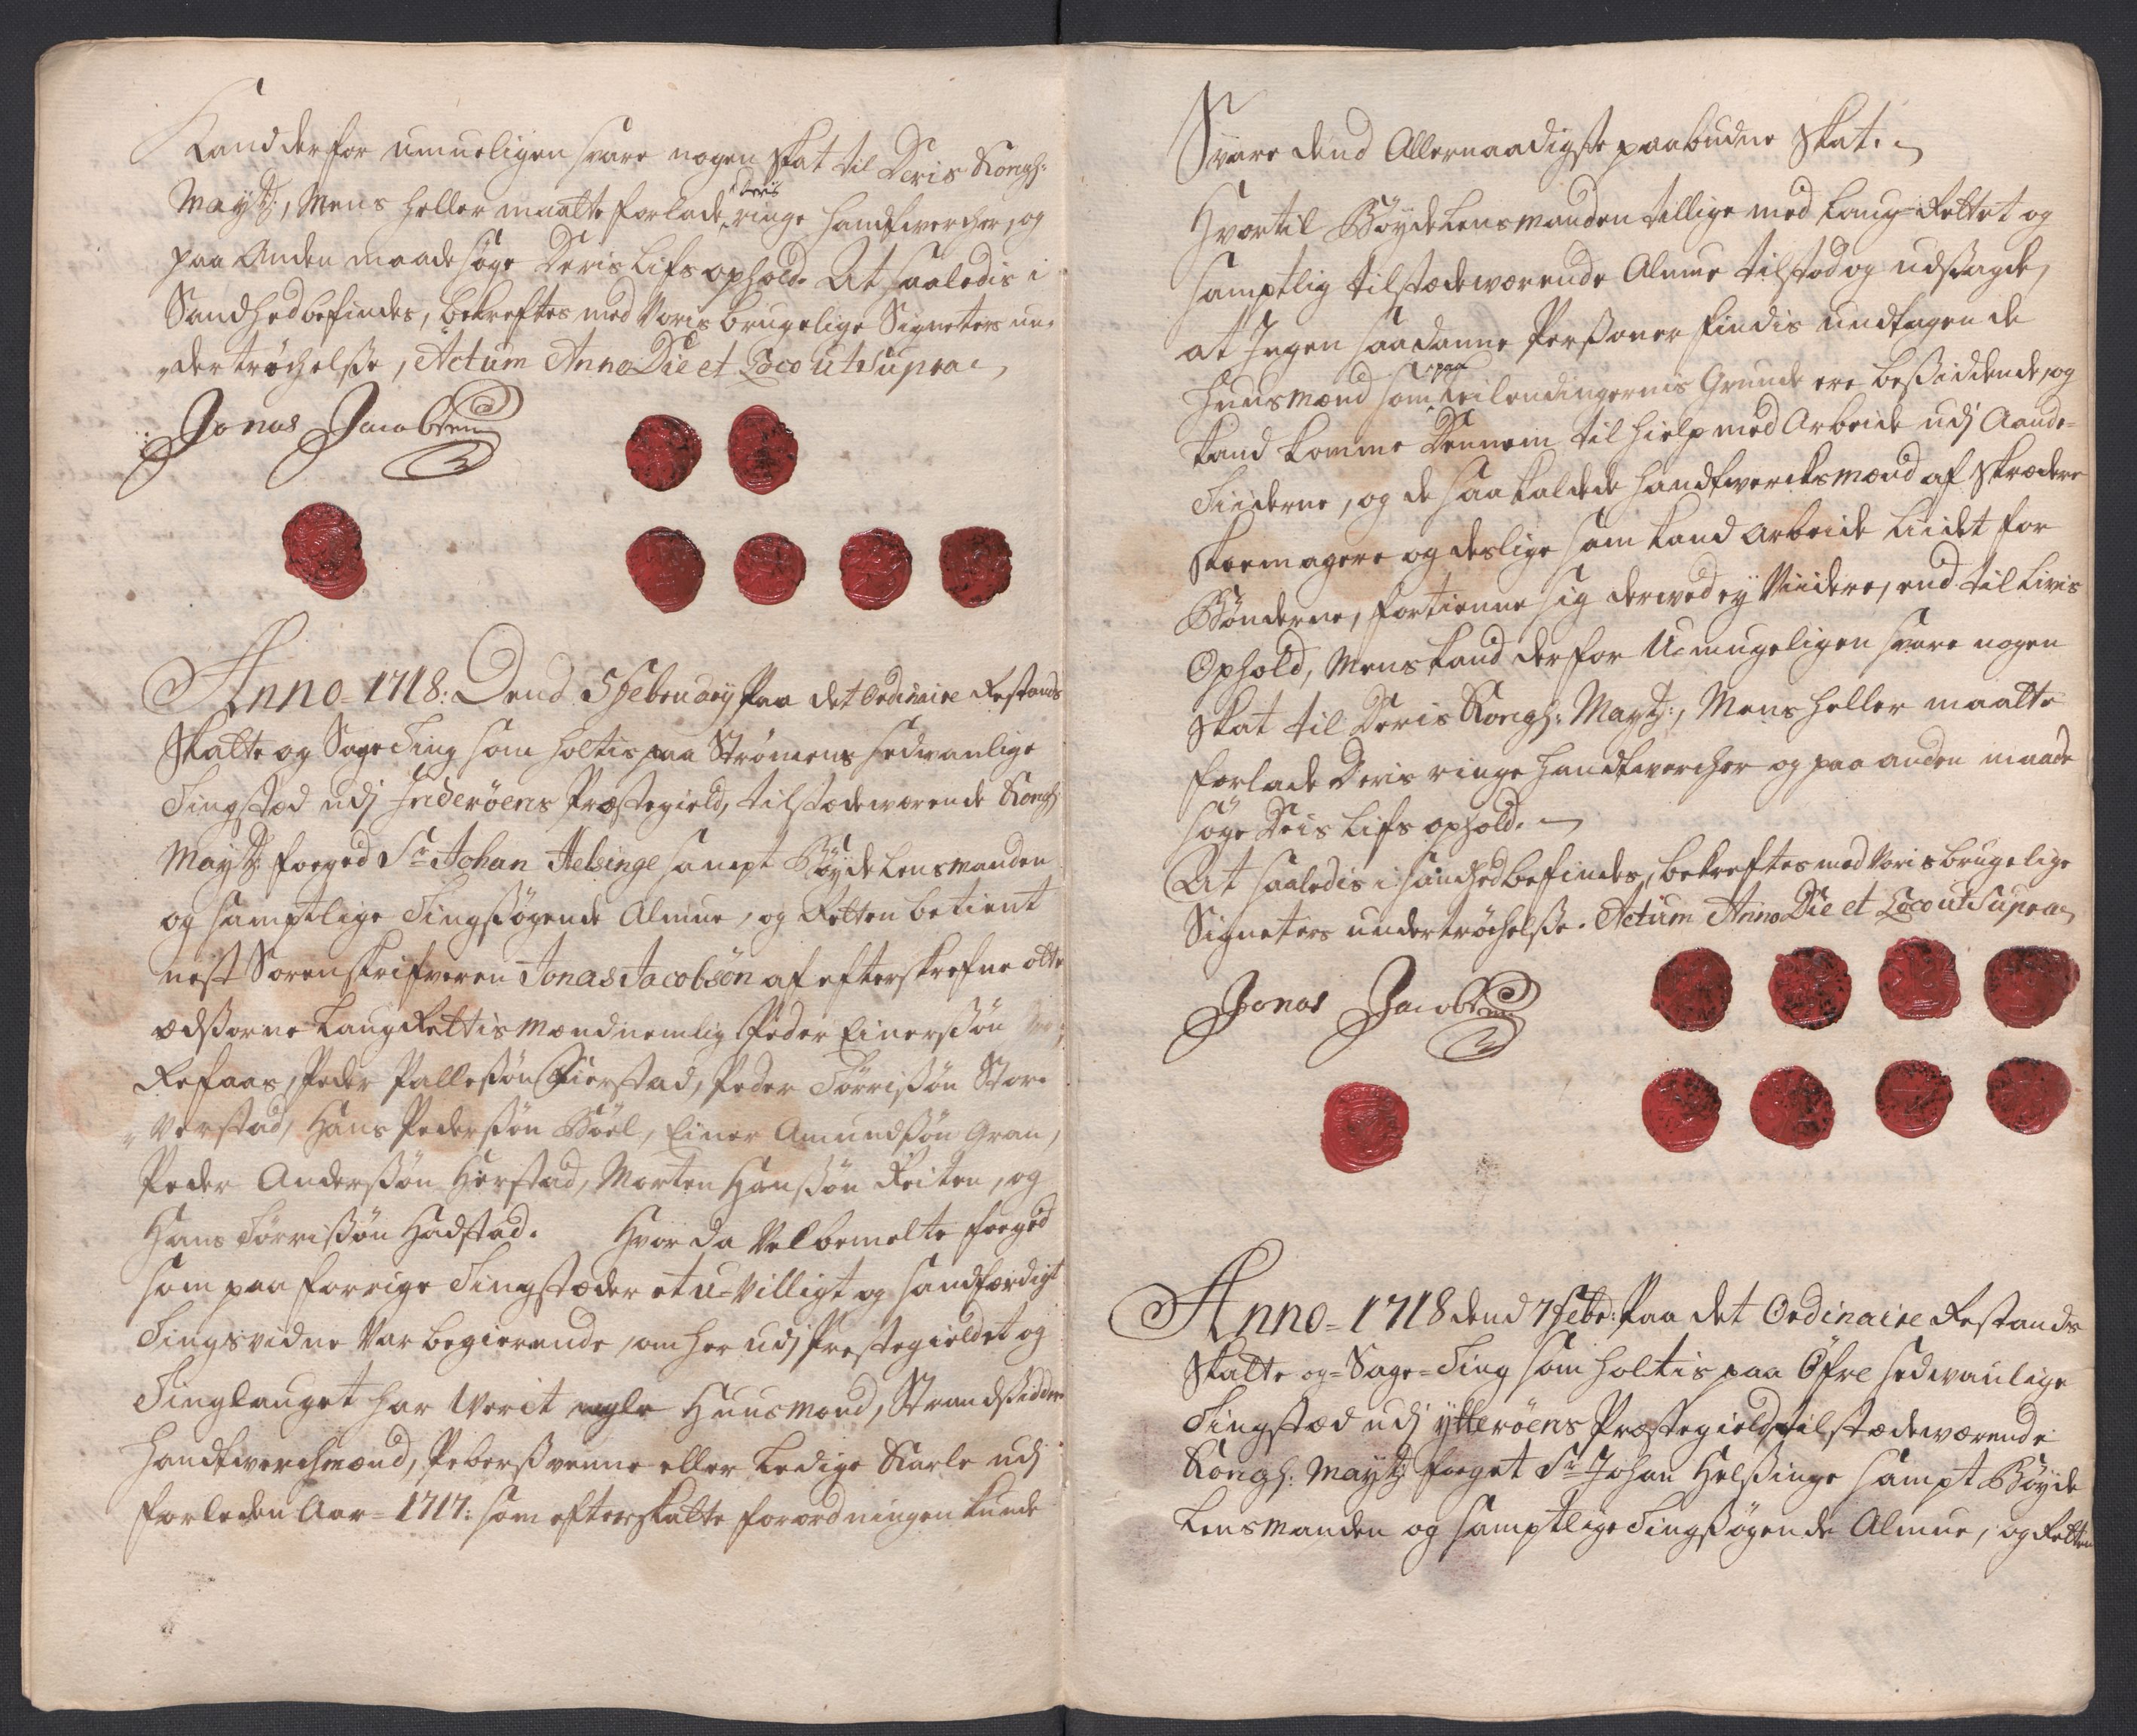 Kand derfor umueligen svare nogen skat til Deris Kongh:
Mayt:, Mens heller maatte forlade deris ringe handtvercher, og
paa Anden maade søge Deris Lifs ophold. At saaledis i
Sandhed befindes, bekreftes med Voris brugelige Signeters un-
dertrøchelsse, Actum Anno Die et Loco ut Supra
Jonas Jacobsen
Anno = 1718: Dend 5 Februarij Paa det Ordinaire Restands
Skatte og Sage Ting som holtis paa Strømens sedvanlige
Tingstæd udj Inderøens Præstegield, tilstædeværende Kongh
Mayt: foeged Sr Johan Helsinge sampt Bøyde Lensmanden
og samptlige Tingsøgende Almue, og Retten betient
nest Sorenskrifveren Jonas Jacobsøn af efterskrefne otte
ædsorne Laug Rettis Mænd nemlig Peder Einerssøn
Refaas, Peder Pallessøn Fierstad, Peder Tørrissøn Stor-
Verstad, Hans Pederssøn Bøel, Einer Amundssøn Gran,
Peder Anderssøn Herstad, Morten Hanssøn Reiten, og
Hans Tørrissøn Hadstad. Hvor da Velbemelte foeged
som paa forrige Tingstæder et u-Villigt og Sandfærdigt
Tingsvidne Var begierende, om her udj Præstegieldet og
Tinglauget har Verit nogle Huusmænd, Strandsiddere
Handtverchmænd, Peberssvenne eller Ledige Karle udj
forleden Aar = 1717: som efter skatte forordningen kunde
Svare dend Allernaadigste paabudne Skat.
Hvortil Bøyde Lensmanden tillige med Laug-Rettet og
samptlig tilstædeværende Almue tilstod og udsagde,
at Ingen saadanne Perssoner findis undtagen de
Huusmænd som paa Leilendingernis Grunde ere bessiddende, og
kand komme Dennem til hielp med Arbeide udj Aande-
Tiiderne, og de saa kaldede Handtvercksmænd af Skrædere
Skoemagere og deslige som kand arbeide Liidet for
Bønderne, fortienne sig derved ey Viidere, end til Livis
Ophold, Mens kand derfor U-mugeligen svare nogen
Skat til Deris Kongh: Mayt:, Mens heller maatte
forlade Deris ringe handtvercher og paa anden maade
søge Deis Lifs ophold.
At saaledis i sandhed befindes, bekreftes med Voris brugelige
Signeters undertrøchelsse. Actum Anno Die et Loco ut Supra
Jonas Jacobsen
Anno = 1718 dend 7 Febr: Paa det Ordinaire Restands
Skatte og = Sage = Ting som holtis paa Øfre sedvanlige
Tingstæd udj ytterøens Præstegield, tilstædeværende
Kongh: Mayt: foeget Sr Johan Helssinge sampt Bøyde
Lensmanden og samptlige Tingssøgende Almue, og Retten